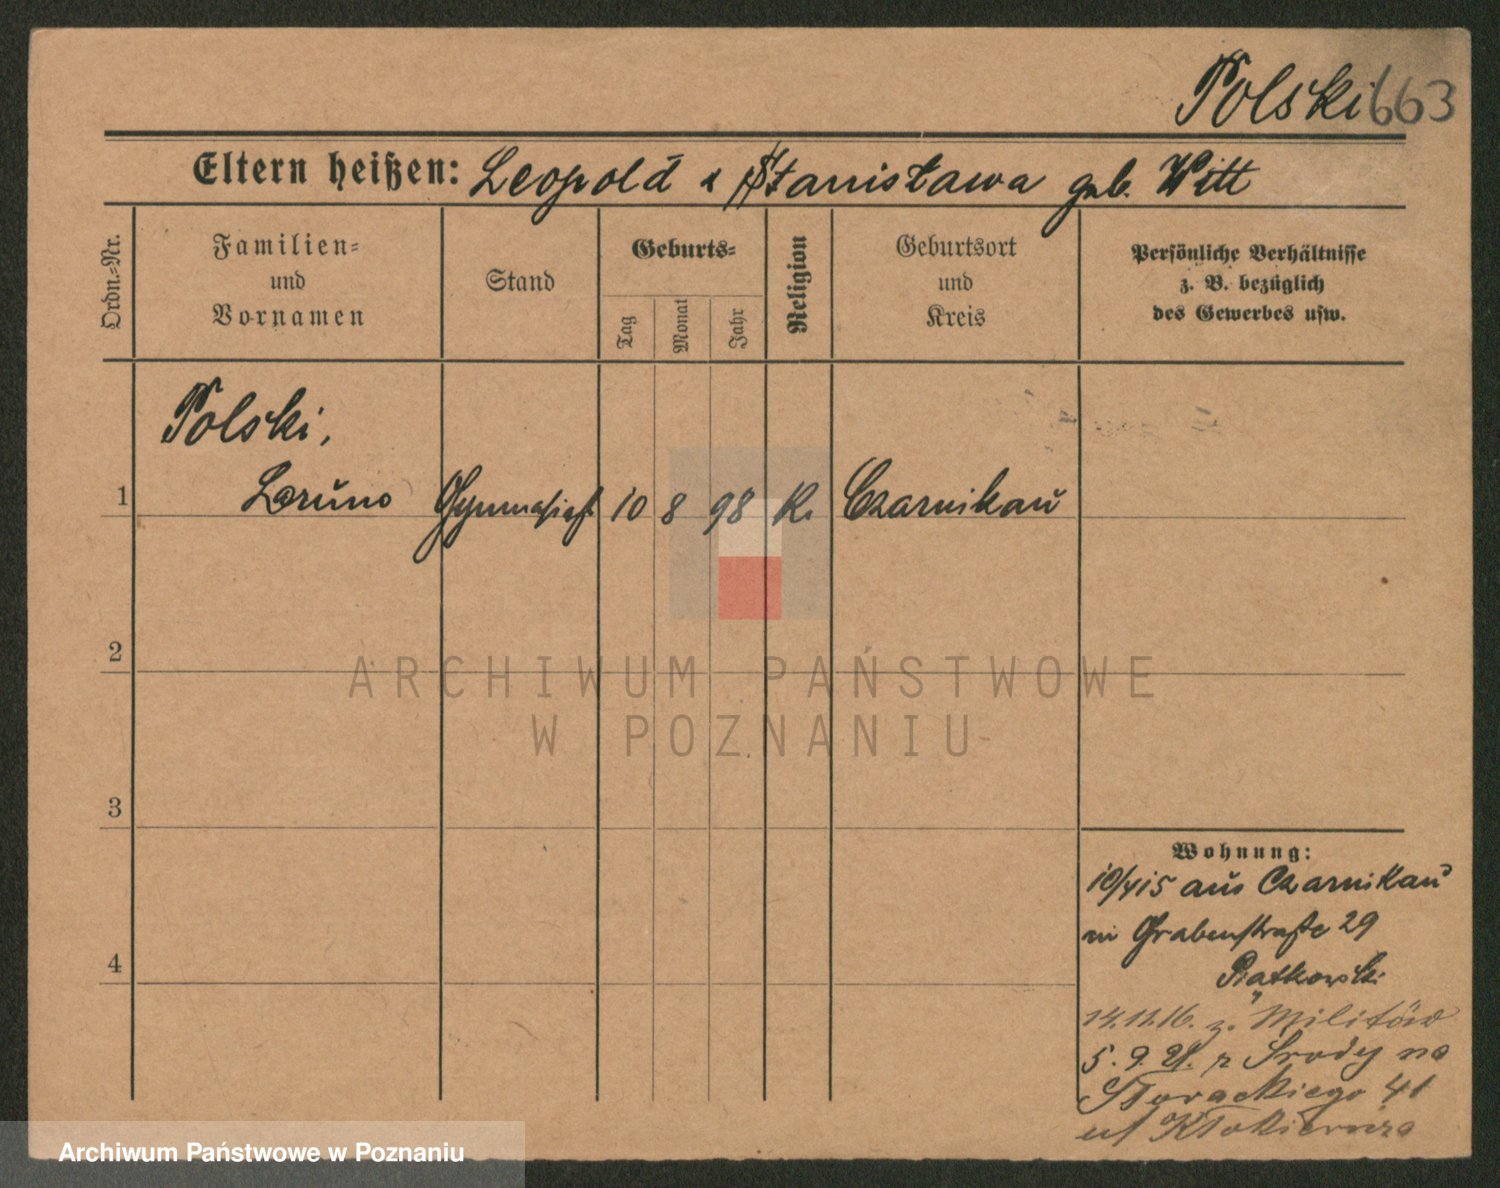 Polski 663
Eltern heißen: Leopold u Stanisława geb. Witt
Ordn.-Nr.
Familien-
und
Vornamen
Stand
Geburts-
Tag
Monat
Jahr
Religion
Geburtsort
und
Kreis
Persönliche Verhältnisse
z. B. bezüglich
des Gewerbes usw.
Polski,
1 Bruno Gymnasiast 10 8 98 K. Czarnikau
2
3
4
Wohnung:
10/4 15 aus Czarnikau
Grabenstraße 29
Piątkowski
14.11.16. z. Militär
5. 9. 21. z Środy na
41
ARCHIWUM PAŃSTWOWE
W POZNANIU
Archiwum Państwowe w Poznaniu